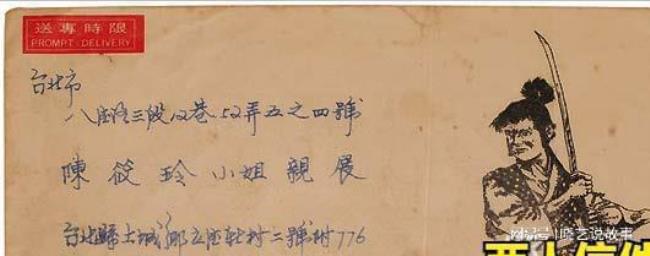 限時專送
PROMPT-DELIVERY
台北市
八德路三段12巷52弄五之四號
陳筱玲小姐親展
台北縣土城鄉立德社村二號附776
搜狐号@晓艺说故事